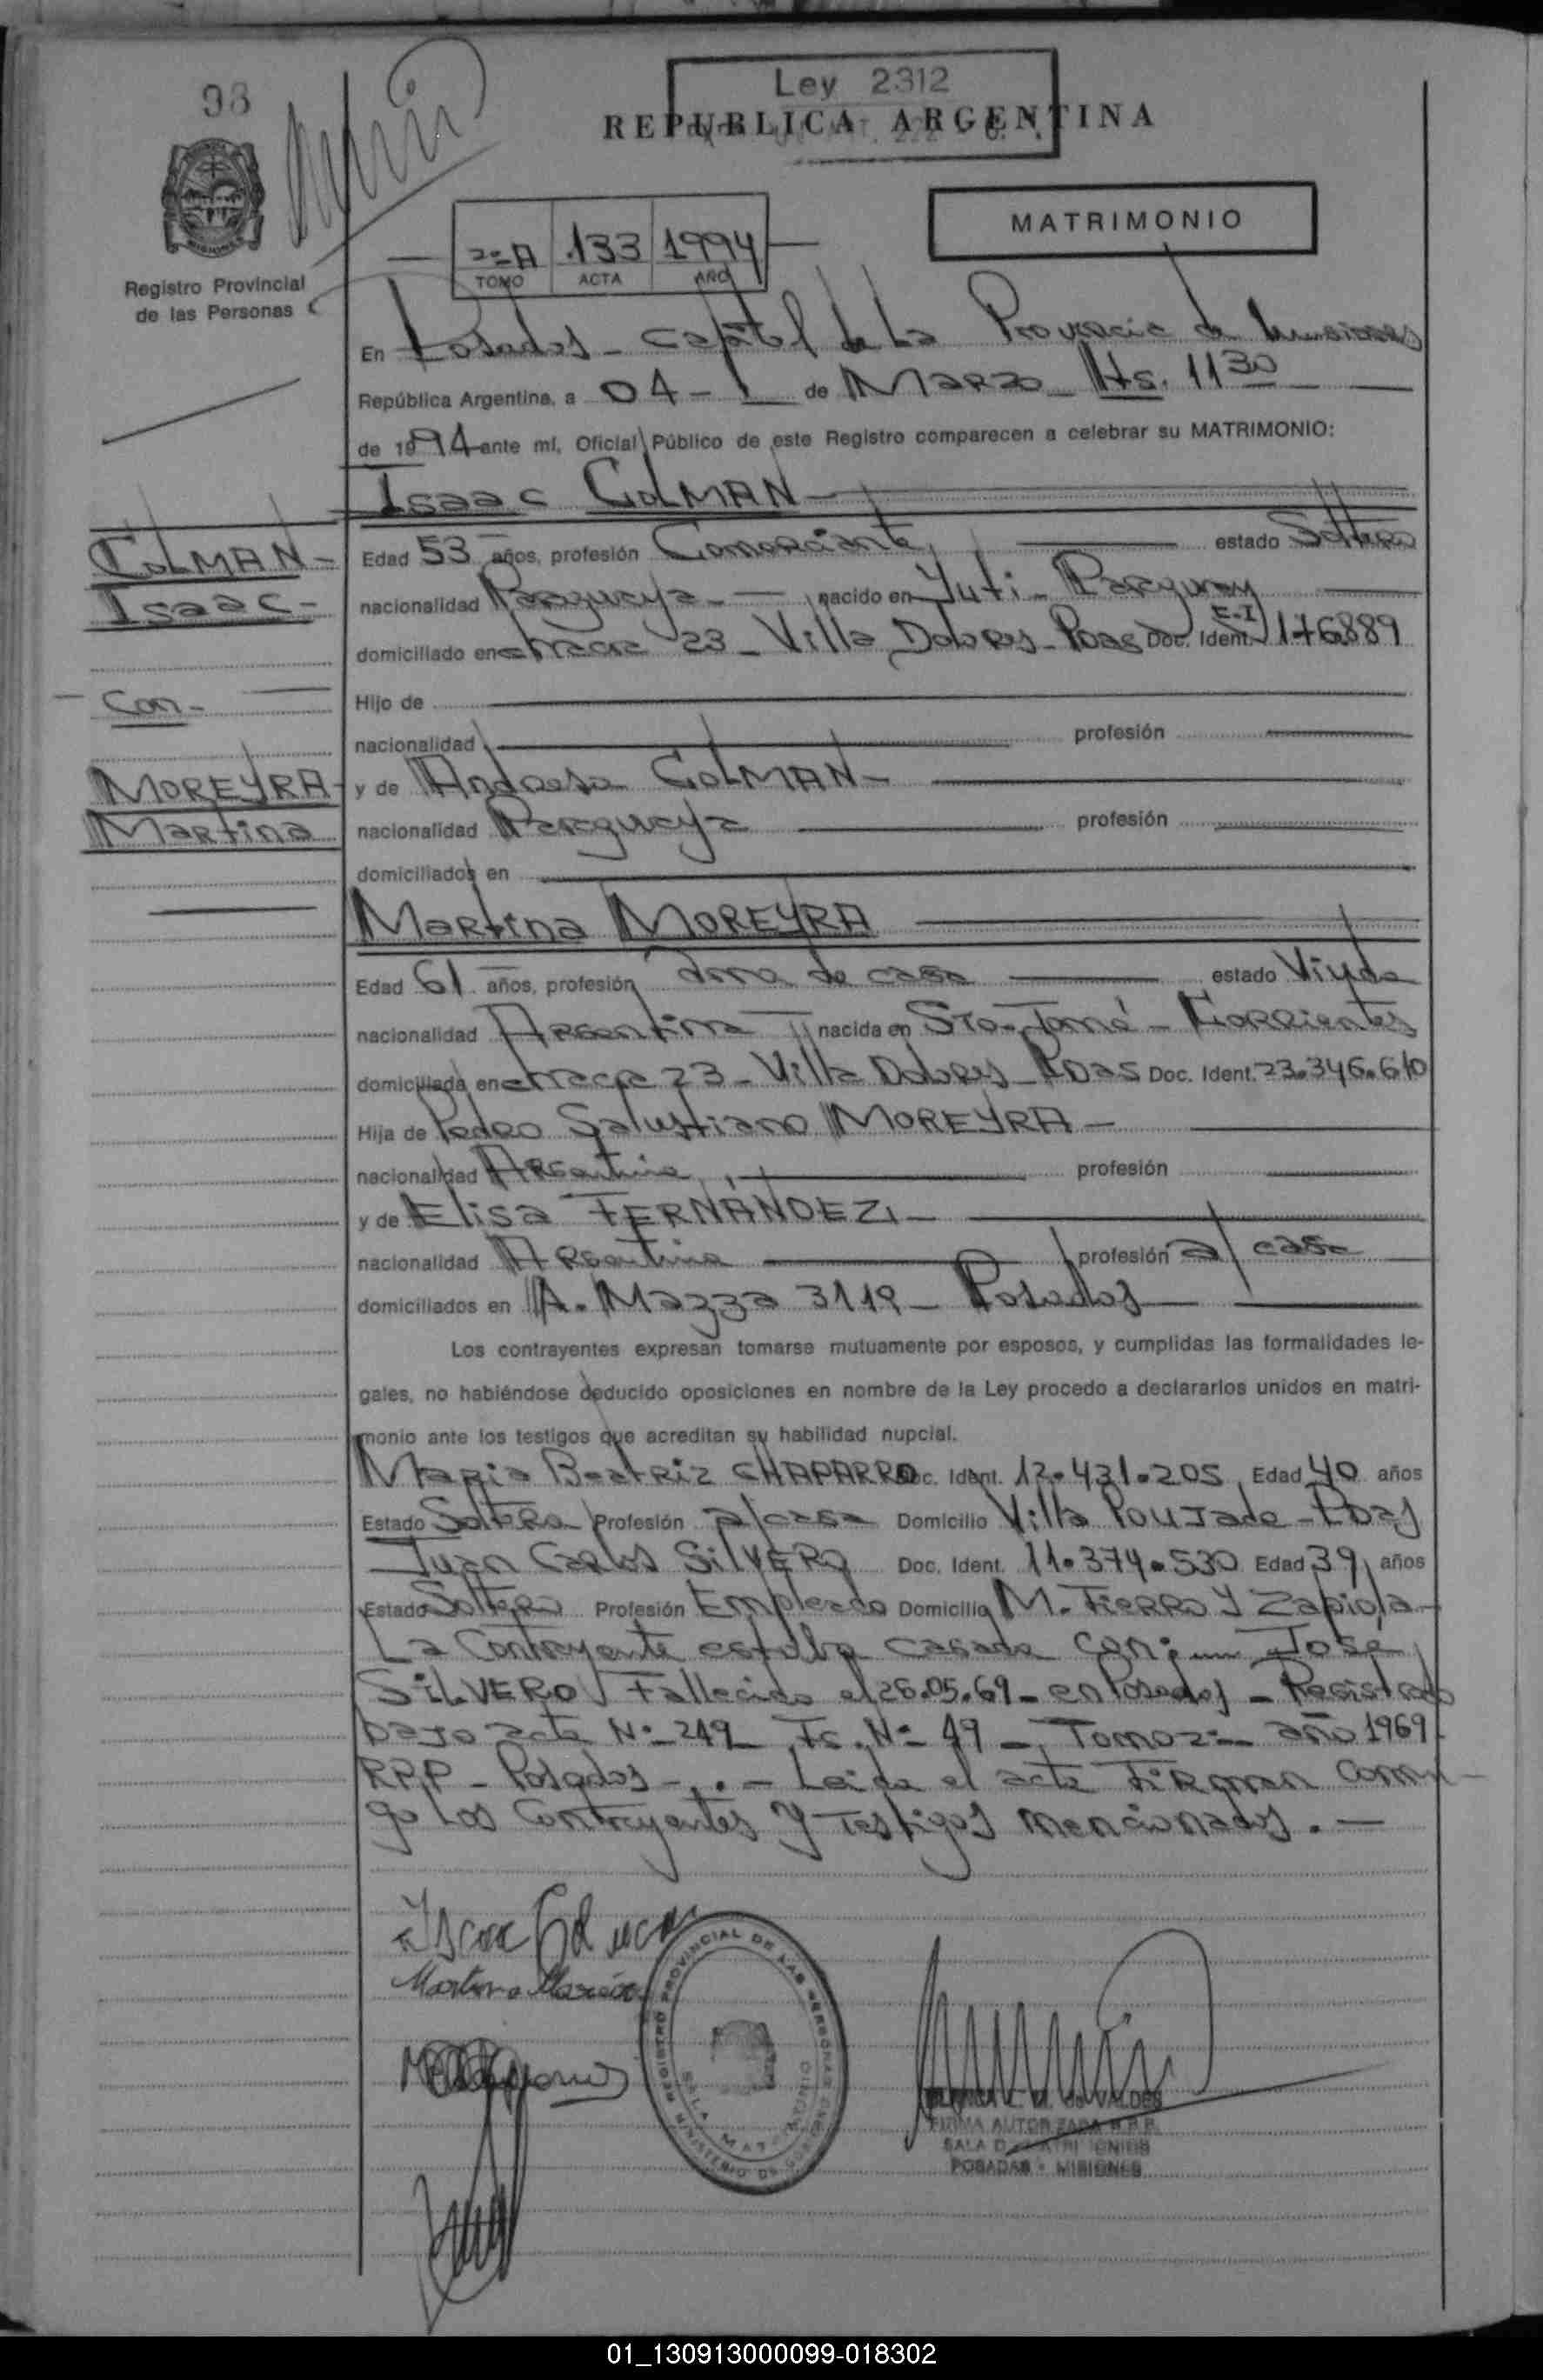 98
Ley 2312
REPUBLICA ARGENTINA
MATRIMONIO
2º A 133 1994
TOMO ACTA AÑO
Registro Provincial
de las Personas
En Posadas - Capital de La Provincia de Misiones
República Argentina, a 04 - de Marzo Hs. 11 30
de 1994 ante mí, Oficial Público de este Registro comparecen a celebrar su MATRIMONIO:
Isaac COLMAN -
COLMAN -
Isaac -
Con -
MOREYRA -
Martina
Edad 53 años, profesión Comerciante estado Soltero
nacionalidad Paraguaya - nacido en Yuti - Paraguay
domiciliado en chacra 23 - Villa Dolores - Pdas Doc. Ident. C.I 176889
Hijo de
nacionalidad profesión
y de Andresa COLMAN -
nacionalidad Paraguaya profesión
domiciliados en
Martina MOREYRA
Edad 61 años, profesión ama de casa estado Viuda
nacionalidad Argentina nacida en Sto. Tomé - Corrientes
domiciliada en chacra 23 - Villa Dolores - Pdas Doc. Ident. 23.346.610
Hija de Pedro Salustiano MOREYRA -
nacionalidad Argentina profesión
y de Elisa FERNÁNDEZ -
nacionalidad Argentina profesión a/ casa
domiciliados en A. Mazza 3119 - Posadas
Los contrayentes expresan tomarse mutuamente por esposos, y cumplidas las formalidades le-
gales, no habiéndose deducido oposiciones en nombre de la Ley procedo a declararlos unidos en matri-
monio ante los testigos que acreditan su habilidad nupcial.
Maria Beatriz CHAPARRO Doc. Ident. 12.431.205 Edad 40 años
Estado Soltera Profesión a/casa Domicilio Villa Poujade - Pdas
Juan Carlos SILVERO Doc. Ident. 11.374.530 Edad 39 años
Estado Soltero Profesión Empleado Domicilio M. Fierro y Zapiola -
La Contrayente estaba casada con: José
SILVERO Fallecido el 26.05.69 - en Posadas - Registrado
bajo acta Nº 249 Fs. Nº 49 - Tomo 2º año 1969
RPP - Posadas - . - Leida el acta Firman conmi-
go Los Contrayentes y Testigos mencionados. -
Isaac Colman
REGISTRO PROVINCIAL DE LAS PERSONAS
SALA MATRIMONIO
MINISTERIO DE GOBIERNO
VALDES
FIRMA AUTORIZADA R.P.P.
SALA DE MATRIMONIOS
POSADAS - MISIONES
01_130913000099-018302